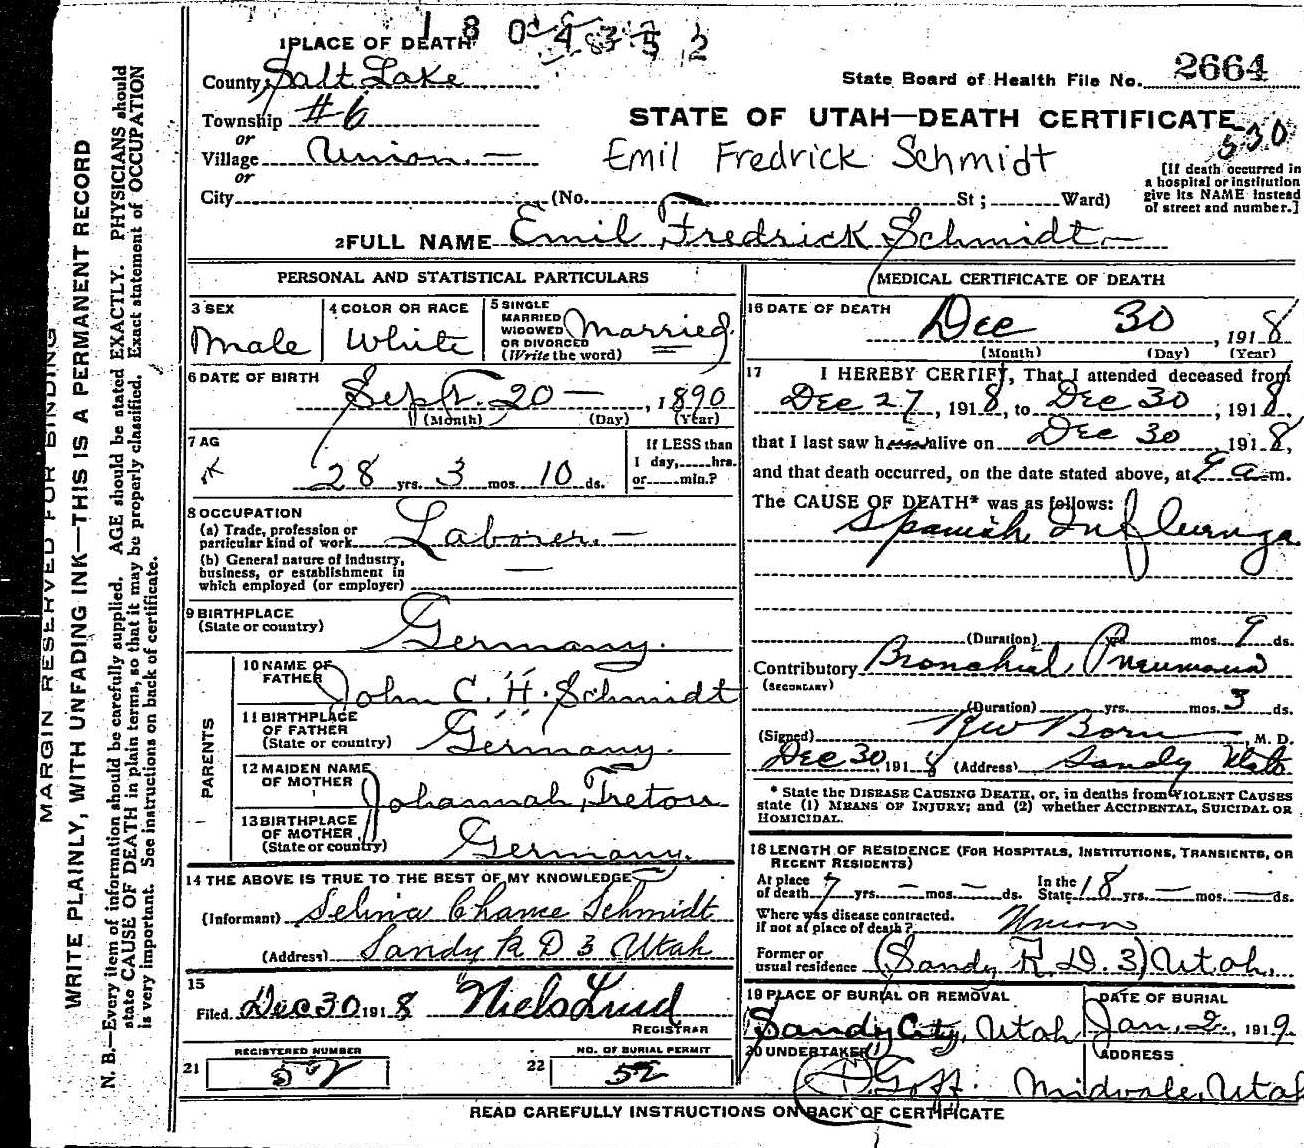 1 8 0 4 3 5 2
1 PLACE OF DEATH
County Salt Lake
State Board of Health File No. 2664
Township #6
STATE OF UTAH—DEATH CERTIFICATE
or
530
Village Union. —
Emil Fredrick Schmidt
or
[If death occurred in a hospital or institution give its NAME instead of street and number.]
City (No. St; Ward)
2 FULL NAME Emil Fredrick Schmidt —
PERSONAL AND STATISTICAL PARTICULARS
3 SEX Male
4 COLOR OR RACE White
5 SINGLE MARRIED WIDOWED OR DIVORCED (Write the word) Married.
6 DATE OF BIRTH Sept. 20 — , 1890
(Month) (Day) (Year)
7 AG
28 yrs. 3 mos. 10 ds.
If LESS than 1 day, hrs. or min.?
8 OCCUPATION
(a) Trade, profession or particular kind of work Laborer. —
(b) General nature of industry, business, or establishment in which employed (or employer) —
9 BIRTHPLACE
(State or country) Germany.
PARENTS
10 NAME OF FATHER John C. H. Schmidt
11 BIRTHPLACE OF FATHER (State or country) Germany.
12 MAIDEN NAME OF MOTHER Johannah Tretow
13 BIRTHPLACE OF MOTHER (State or country) Germany.
14 THE ABOVE IS TRUE TO THE BEST OF MY KNOWLEDGE
(Informant) Selina Chance Schmidt
(Address) Sandy R D 3 Utah
15
Filed Dec 30 1918 Niels Lind
REGISTRAR
21 REGISTERED NUMBER 52
22 NO. OF BURIAL PERMIT 52
MEDICAL CERTIFICATE OF DEATH
16 DATE OF DEATH
Dec 30, 1918
(Month) (Day) (Year)
17 I HEREBY CERTIFY, That I attended deceased from
Dec 27, 1918, to Dec 30, 1918,
that I last saw h alive on Dec 30, 1918,
and that death occurred, on the date stated above, at 9 a. m.
The CAUSE OF DEATH* was as follows:
Spanish Influenza
(Duration) yrs. mos. 9 ds.
Contributory Bronchial Pneumonia
(SECONDARY)
(Duration) yrs. mos. 3 ds.
(Signed) Born, M. D.
Dec 30, 1918 (Address) Sandy Utah
* State the DISEASE CAUSING DEATH, or, in deaths from VIOLENT CAUSES
state (1) MEANS OF INJURY; and (2) whether ACCIDENTAL, SUICIDAL OR
HOMICIDAL.
18 LENGTH OF RESIDENCE (FOR HOSPITALS, INSTITUTIONS, TRANSIENTS, OR RECENT RESIDENTS)
At place of death 7 yrs. — mos. — ds. In the State 18 yrs. — mos. — ds.
Where was disease contracted. If not at place of death? Union
Former or usual residence (Sandy R. D. 3) Utah.
19 PLACE OF BURIAL OR REMOVAL Sandy City, Utah
DATE OF BURIAL Jan. 2., 1919.
20 UNDERTAKER Goff.
ADDRESS Midvale, Utah
READ CAREFULLY INSTRUCTIONS ON BACK OF CERTIFICATE
MARGIN RESERVED FOR BINDING
WRITE PLAINLY, WITH UNFADING INK—THIS IS A PERMANENT RECORD
N. B.—Every item of information should be carefully supplied. AGE should be stated EXACTLY. PHYSICIANS should
state CAUSE OF DEATH in plain terms, so that it may be properly classified. Exact statement of OCCUPATION
is very important. See instructions on back of certificate.